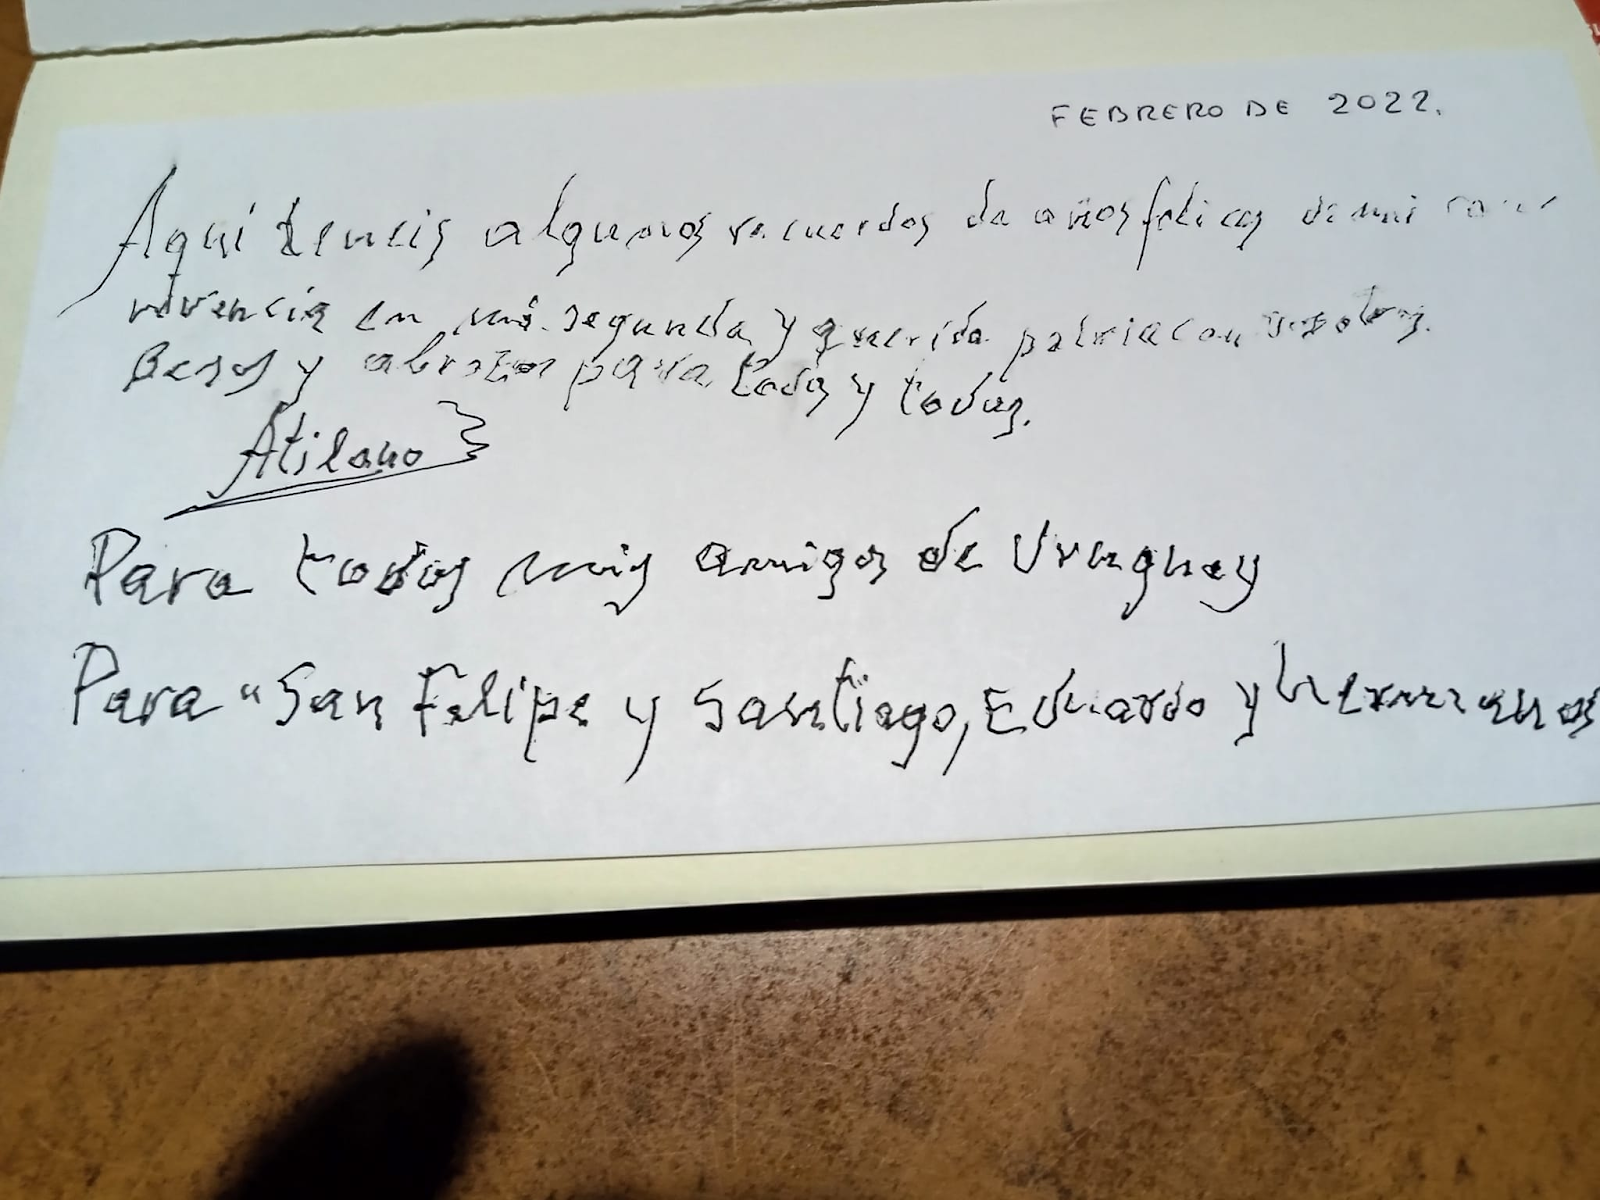 FEBRERO DE 2022.
Aquí teneis algunos recuerdos de años felices de mi con-
vivencia en mi segunda y querida patria con vosotros.
Besos y abrazos para todos y todas.
Atilano
Para todos mis amigos de Uruguay
Para "San Felipe y Santiago, Eduardo y hermanos